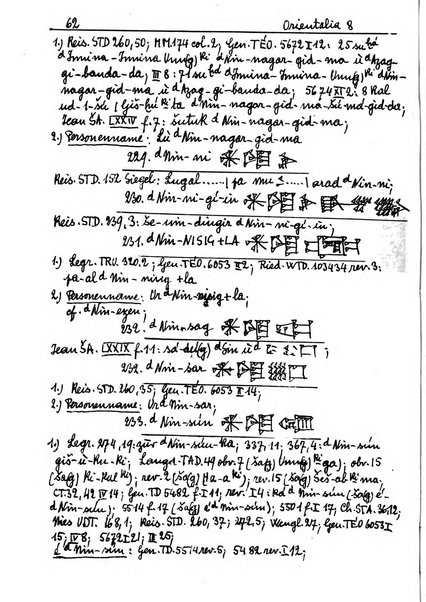 62 Orientalia 8
1.) Reis. STD 260,50; MM 174 col. 2; Gen. TÉO. 5672 I 12: 25 šu bá
d Immina-Immina Unug(g) ki d Nin-nagar-gid-ma ù d Azag-
gi-ba-n-da-da; III 8: 71 šu bá d Immina-Immina Unug(g) ki d Nin-
nagar-gid-ma ù d Azag-gi-banda-da; 5674 XI 2: 8 Kal
ud-1-šè d Nin-nagar-gid-ma-šè
Jean ŠA. XXIV f. 7: šutuk d Nin-nagar-gid-ma;
2.) Personenname: Lù d Nin-nagar-gid-ma
229. d Nin-ni
Reis. STD. 152 Siegel: Lugal......; arad d Nin-ni;
230. d Nin-ni-gi-in
Reis. STD. 239,3: še-um-dingir d Nin-ni-gi-in;
231. d Nin-NISIG+LA
1.) Legr. TRU. 320,2; Gen. TÉO. 6053 II 2; Ried. WTD. 103434 rev. 3:
pa-al d Nin-nisig+la
2.) Personenname: Ur d Nin-nisig+la;
cf. d Nin-ezen;
232. d Nin-sag
Jean ŠA. XXIX f. 11: d Sin ù d
232. d Nin-sar
1.) Reis. STD. 260,35; Gen. TÉO. 6053 II 14;
2.) Personenname: Ur d Nin-sar;
233. d Nin-sún
1.) Legr. 274,19: d Nin-sún-ka; 337,11; 367,4: d Nin-sún
giš-ù-Ku-Ki; Langd. TAD. 49 obv. 7 (šag Unug(g) ki-ga); obv. 15
(šag Ki-kul ki); rev. 2 (šag Ha-a ki); rev. 15 (šag Šeš-ab ki-ma;
CT. 32, 42 IV 14; Gen. TD 5482 f. I 11, rev. I 4: d Nin-sún (šag é
d Nin-sún); 5514 f. 17 (šag é d Nin-sún); 5501 f. I 17; Ch. STA. 36 12;
Nies UDT. 168,1; Reis. STD. 260,37; 272,5; Wengl. 27; Gen. TÉO 6053 I
15; IV 8; 5672 I 21; III 25;
é d Nin-sún: Gen. TD. 5514 rev. 5; 5482 rev. I 12;